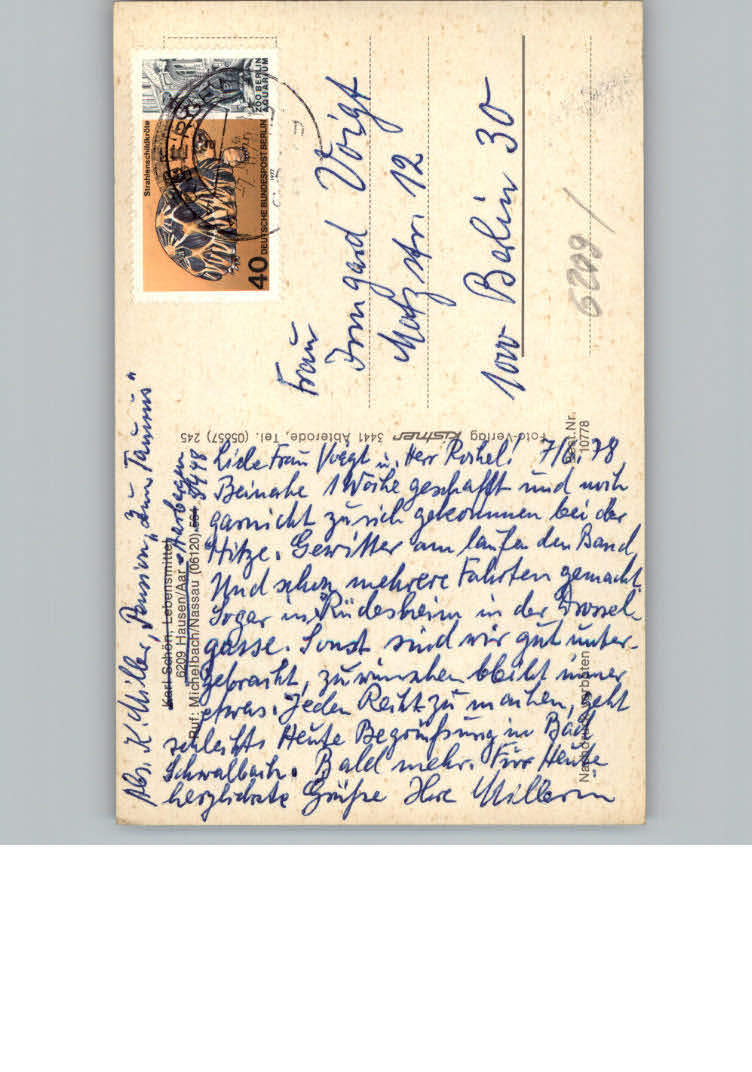 Abs. K. Miller, Pension „Zum Taunus"
Karl Schön, Lebensmittel
6209 Hausen/Aar
Ruf: Michelbach/Nassau (06120)
8448
Foto-Verlag Kistner 3441 Abterode, Tel. (05657) 245
Best.Nr.
10778
Nachdruck verboten
7/6. 78
Liebe Frau Voigt u. Herr
Beinahe 1 Woche geschafft und noch
garnicht zu sich gekommen bei der
Hitze. Gewitter am laufenden Band
Und schon mehrere Fahrten gemacht
Sogar in Rüdesheim in der Drossel-
gasse. Sonst sind wir gut unter-
gebracht, zu wünschen bleibt immer
etwas. Jeden Recht zu machen, geht
schlecht. Heute Begrüßung in Bad
Schwalbach. Bald mehr. Für Heute
herzlichste Grüße Ihre Millerin
Strahlenschildkröte
ZOO BERLIN
AQUARIUM
40 DEUTSCHE BUNDESPOST BERLIN
1977
Frau
Irmgard Voigt
Motzstr. 12
1000 Berlin 30
6209 /